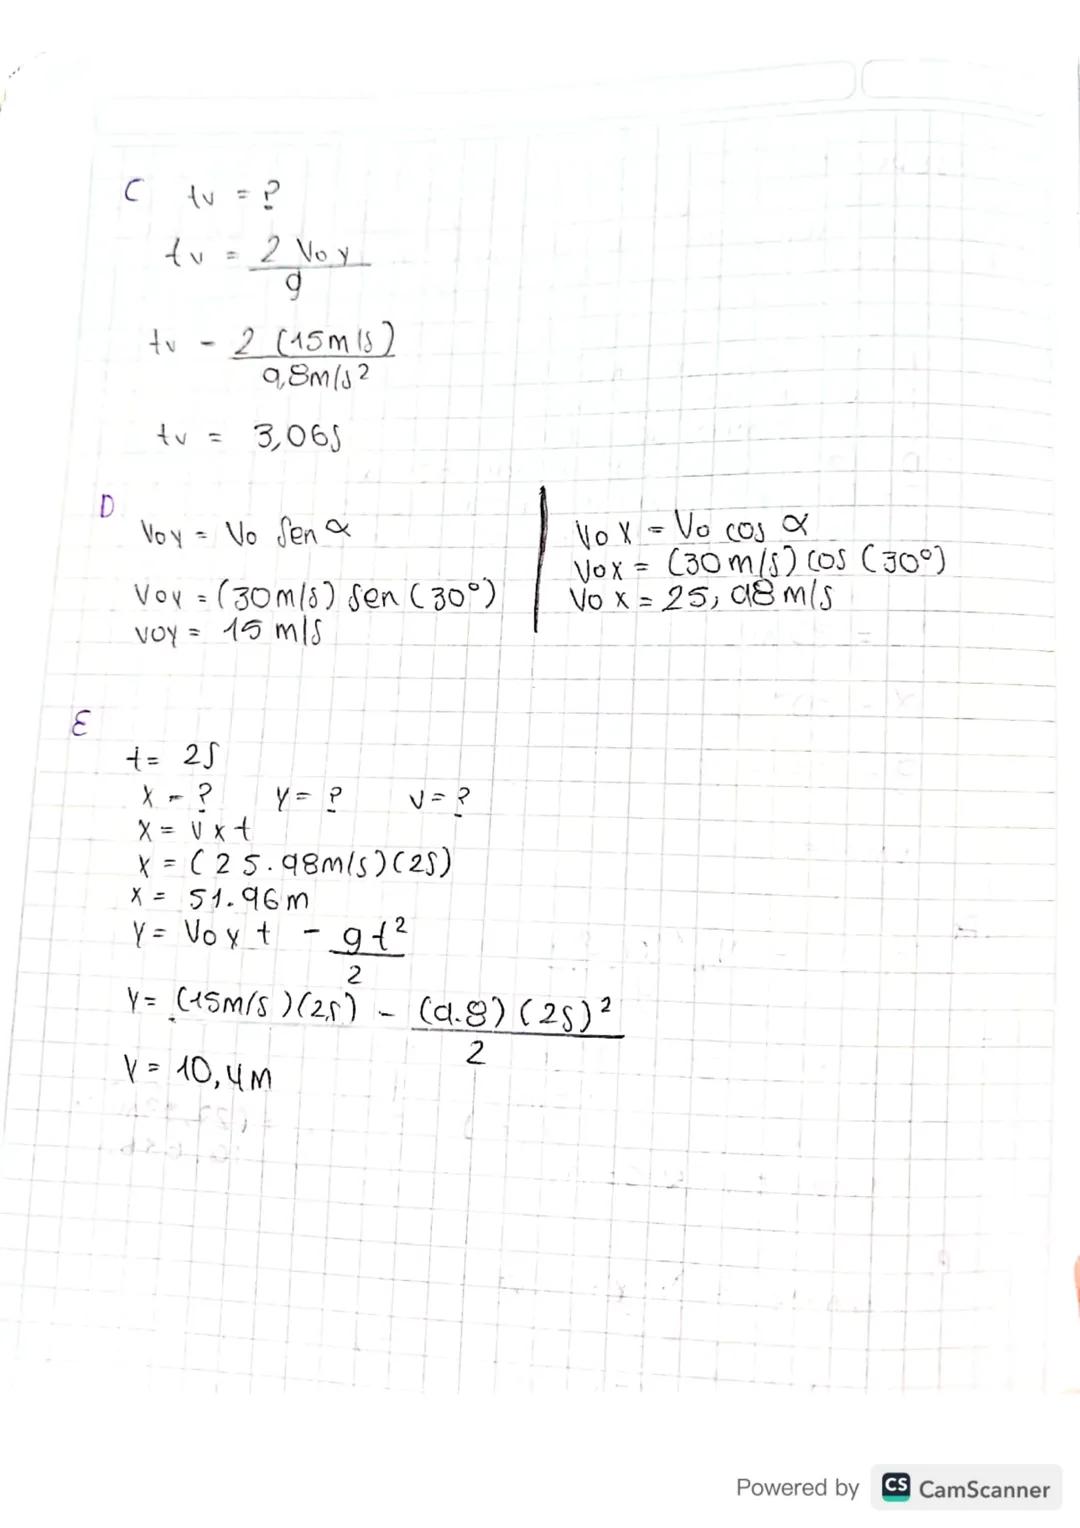 C tv = ?
tv = 2 Voy
g
tv - 2 (15m/s)
9,8m/s²
tv = 3,06s
D
Voy = Vo Sen α
Voy = (30m/s) Sen (30°)
voy = 15 m/s
Vox = Vo cos α
Vox = (30m/s) cos (30°)
Vox = 25,98 m/s
E
t = 2s
x - ? y = ? v = ?
x = vxt
x = (25.98m/s)(2s)
x = 51.96m
y = Voy t - gt²
2
y = (15m/s)(2s) - (9.8)(2s)²
2
y = 10,4m
Powered by CS CamScanner